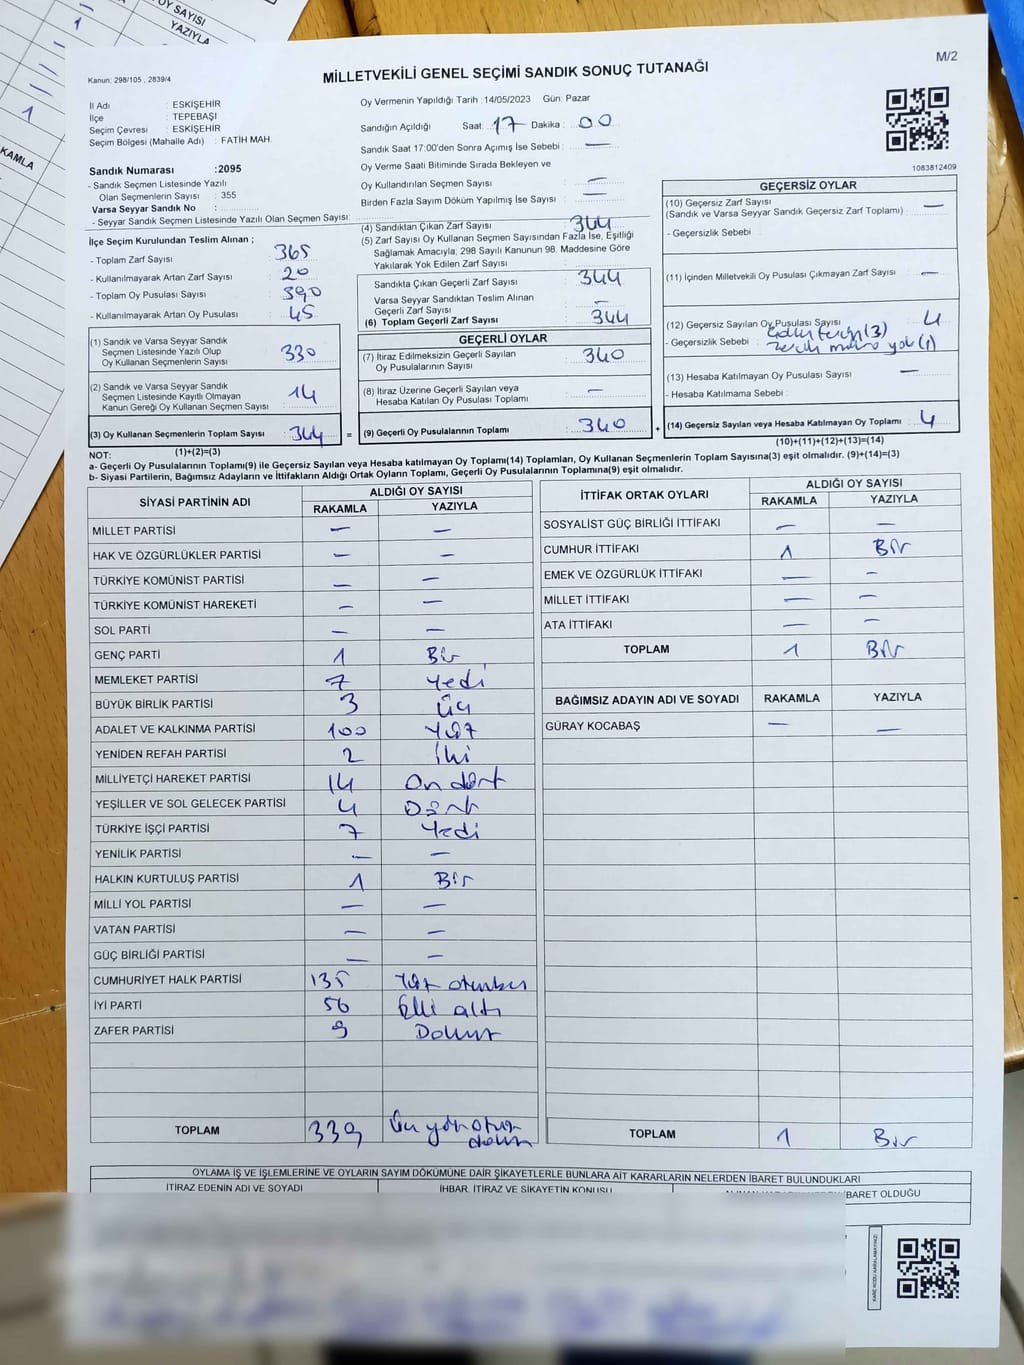 OY SAYISI
YAZIYLA
1
1
KAMLA
M/2
Kanun: 298/105 , 2839/4
MİLLETVEKİLİ GENEL SEÇİMİ SANDIK SONUÇ TUTANAĞI
İl Adı : ESKİŞEHİR
İlçe : TEPEBAŞI
Seçim Çevresi : ESKİŞEHİR
Seçim Bölgesi (Mahalle Adı) : FATİH MAH.
Sandık Numarası :2095
- Sandık Seçmen Listesinde Yazılı
Olan Seçmenlerin Sayısı : 355
Varsa Seyyar Sandık No :
- Seyyar Sandık Seçmen Listesinde Yazılı Olan Seçmen Sayısı:
Oy Vermenin Yapıldığı Tarih :14/05/2023 Gün: Pazar
Sandığın Açıldığı Saat: 17 Dakika : 00
Sandık Saat 17:00'den Sonra Açımış İse Sebebi : —
Oy Verme Saati Bitiminde Sırada Bekleyen ve
Oy Kullandırılan Seçmen Sayısı : —
Birden Fazla Sayım Döküm Yapılmış İse Sayısı : —
1083812409
İlçe Seçim Kurulundan Teslim Alınan ;
- Toplam Zarf Sayısı : 365
- Kullanılmayarak Artan Zarf Sayısı : 20
- Toplam Oy Pusulası Sayısı : 390
- Kullanılmayarak Artan Oy Pusulası : 45
(1) Sandık ve Varsa Seyyar Sandık
Seçmen Listesinde Yazılı Olup
Oy Kullanan Seçmenlerin Sayısı : 330
(2) Sandık ve Varsa Seyyar Sandık
Seçmen Listesinde Kayıtlı Olmayan
Kanun Gereği Oy Kullanan Seçmen Sayısı : 14
(3) Oy Kullanan Seçmenlerin Toplam Sayısı : 344
(1)+(2)=(3)
(4) Sandıktan Çıkan Zarf Sayısı : 344
(5) Zarf Sayısı Oy Kullanan Seçmen Sayısından Fazla İse, Eşitliği
Sağlamak Amacıyla; 298 Sayılı Kanunun 98. Maddesine Göre
Yakılarak Yok Edilen Zarf Sayısı :
Sandıkta Çıkan Geçerli Zarf Sayısı : 344
Varsa Seyyar Sandıktan Teslim Alınan
Geçerli Zarf Sayısı : —
(6) Toplam Geçerli Zarf Sayısı : 344
GEÇERLİ OYLAR
(7) İtiraz Edilmeksizin Geçerli Sayılan
Oy Pusulalarının Sayısı : 340
(8) İtiraz Üzerine Geçerli Sayılan veya
Hesaba Katılan Oy Pusulası Toplamı : —
= (9) Geçerli Oy Pusulalarının Toplamı : 340 +
GEÇERSİZ OYLAR
(10) Geçersiz Zarf Sayısı
(Sandık ve Varsa Seyyar Sandık Geçersiz Zarf Toplamı) : —
- Geçersizlik Sebebi :
(11) İçinden Milletvekili Oy Pusulası Çıkmayan Zarf Sayısı : —
(12) Geçersiz Sayılan Oy Pusulası Sayısı : 4
- Geçersizlik Sebebi : tercih (3)
yok (1)
(13) Hesaba Katılmayan Oy Pusulası Sayısı : —
- Hesaba Katılmama Sebebi :
(14) Geçersiz Sayılan veya Hesaba Katılmayan Oy Toplamı : 4
(10)+(11)+(12)+(13)=(14)
NOT:
a- Geçerli Oy Pusulaları Toplamı(9) ile Geçersiz Sayılan veya Hesaba katılmayan Oy Toplamı(14) Toplamları, Oy Kullanan Seçmenlerin Toplam Sayısına(3) eşit olmalıdır. (9)+(14)=(3)
b- Siyasi Partilerin, Bağımsız Adayların ve İttifakların Aldığı Ortak Oyların Toplamı, Geçerli Oy Pusulalarının Toplamına(9) eşit olmalıdır.
SİYASİ PARTİNİN ADI ALDIĞI OY SAYISI
RAKAMLA YAZIYLA
MİLLET PARTİSİ — —
HAK VE ÖZGÜRLÜKLER PARTİSİ — —
TÜRKİYE KOMÜNİST PARTİSİ — —
TÜRKİYE KOMÜNİST HAREKETİ — —
SOL PARTİ — —
GENÇ PARTİ 1 Bir
MEMLEKET PARTİSİ 7 Yedi
BÜYÜK BİRLİK PARTİSİ 3 Üç
ADALET VE KALKINMA PARTİSİ 100 Yüz
YENİDEN REFAH PARTİSİ 2 İki
MİLLİYETÇİ HAREKET PARTİSİ 14 On dört
YEŞİLLER VE SOL GELECEK PARTİSİ 4 Dört
TÜRKİYE İŞÇİ PARTİSİ 7 Yedi
YENİLİK PARTİSİ — —
HALKIN KURTULUŞ PARTİSİ 1 Bir
MİLLİ YOL PARTİSİ — —
VATAN PARTİSİ — —
GÜÇ BİRLİĞİ PARTİSİ — —
CUMHURİYET HALK PARTİSİ 135 Yüz otuzbeş
İYİ PARTİ 56 Elli altı
ZAFER PARTİSİ 9 Dokuz
TOPLAM 339 Üçyüz otuz
dokuz
İTTİFAK ORTAK OYLARI ALDIĞI OY SAYISI
RAKAMLA YAZIYLA
SOSYALİST GÜÇ BİRLİĞİ İTTİFAKI — —
CUMHUR İTTİFAKI 1 Bir
EMEK VE ÖZGÜRLÜK İTTİFAKI — —
MİLLET İTTİFAKI — —
ATA İTTİFAKI — —
TOPLAM 1 Bir
BAĞIMSIZ ADAYIN ADI VE SOYADI RAKAMLA YAZIYLA
GÜRAY KOCABAŞ — —
TOPLAM 1 Bir
OYLAMA İŞ VE İŞLEMLERİNE VE OYLARIN SAYIM DÖKÜMÜNE DAİR ŞİKAYETLERLE BUNLARA AİT KARARLARIN NELERDEN İBARET BULUNDUKLARI
İTİRAZ EDENİN ADI VE SOYADI İHBAR, İTİRAZ VE ŞİKAYETİN KONUSU İBARET OLDUĞU
KARE KODU KARALAMAYINIZ!